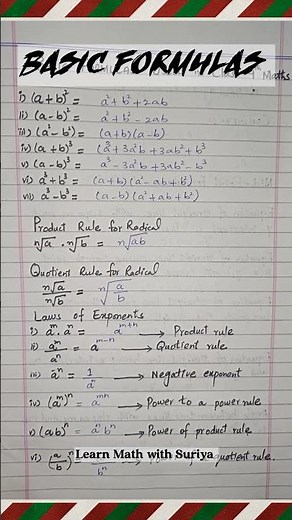 BASIC FORMHLAS
Maths
i) (a+b)² = a²+b²+2ab
ii) (a-b)² = a²+b²-2ab
iii) (a²-b²) = (a+b)(a-b)
iv) (a+b)³ = (a³+3a²b+3ab²+b³
v) (a-b)³ = a³-3a²b+3ab²-b³
vi) a³+b³ = (a+b)(a²-ab+b²)
vii) a³-b³ = (a-b)(a²+ab+b²)
Product Rule for Radical
ⁿ√a . ⁿ√b = ⁿ√ab
Quotient Rule for Radical
ⁿ√a / ⁿ√b = ⁿ√(a/b)
Laws of Exponents
i) aᵐ.aⁿ = aᵐ⁺ⁿ → Product rule
ii) aᵐ/aⁿ = aᵐ⁻ⁿ → Quotient rule
iii) a⁻ⁿ = 1/aⁿ → Negative exponent
iv) (aᵐ)ⁿ = aᵐⁿ → Power to a power rule
v) (ab)ⁿ = aⁿbⁿ → Power of product rule
vi) (a/b)ⁿ = bⁿ quotient rule.
Learn Math with Suriya